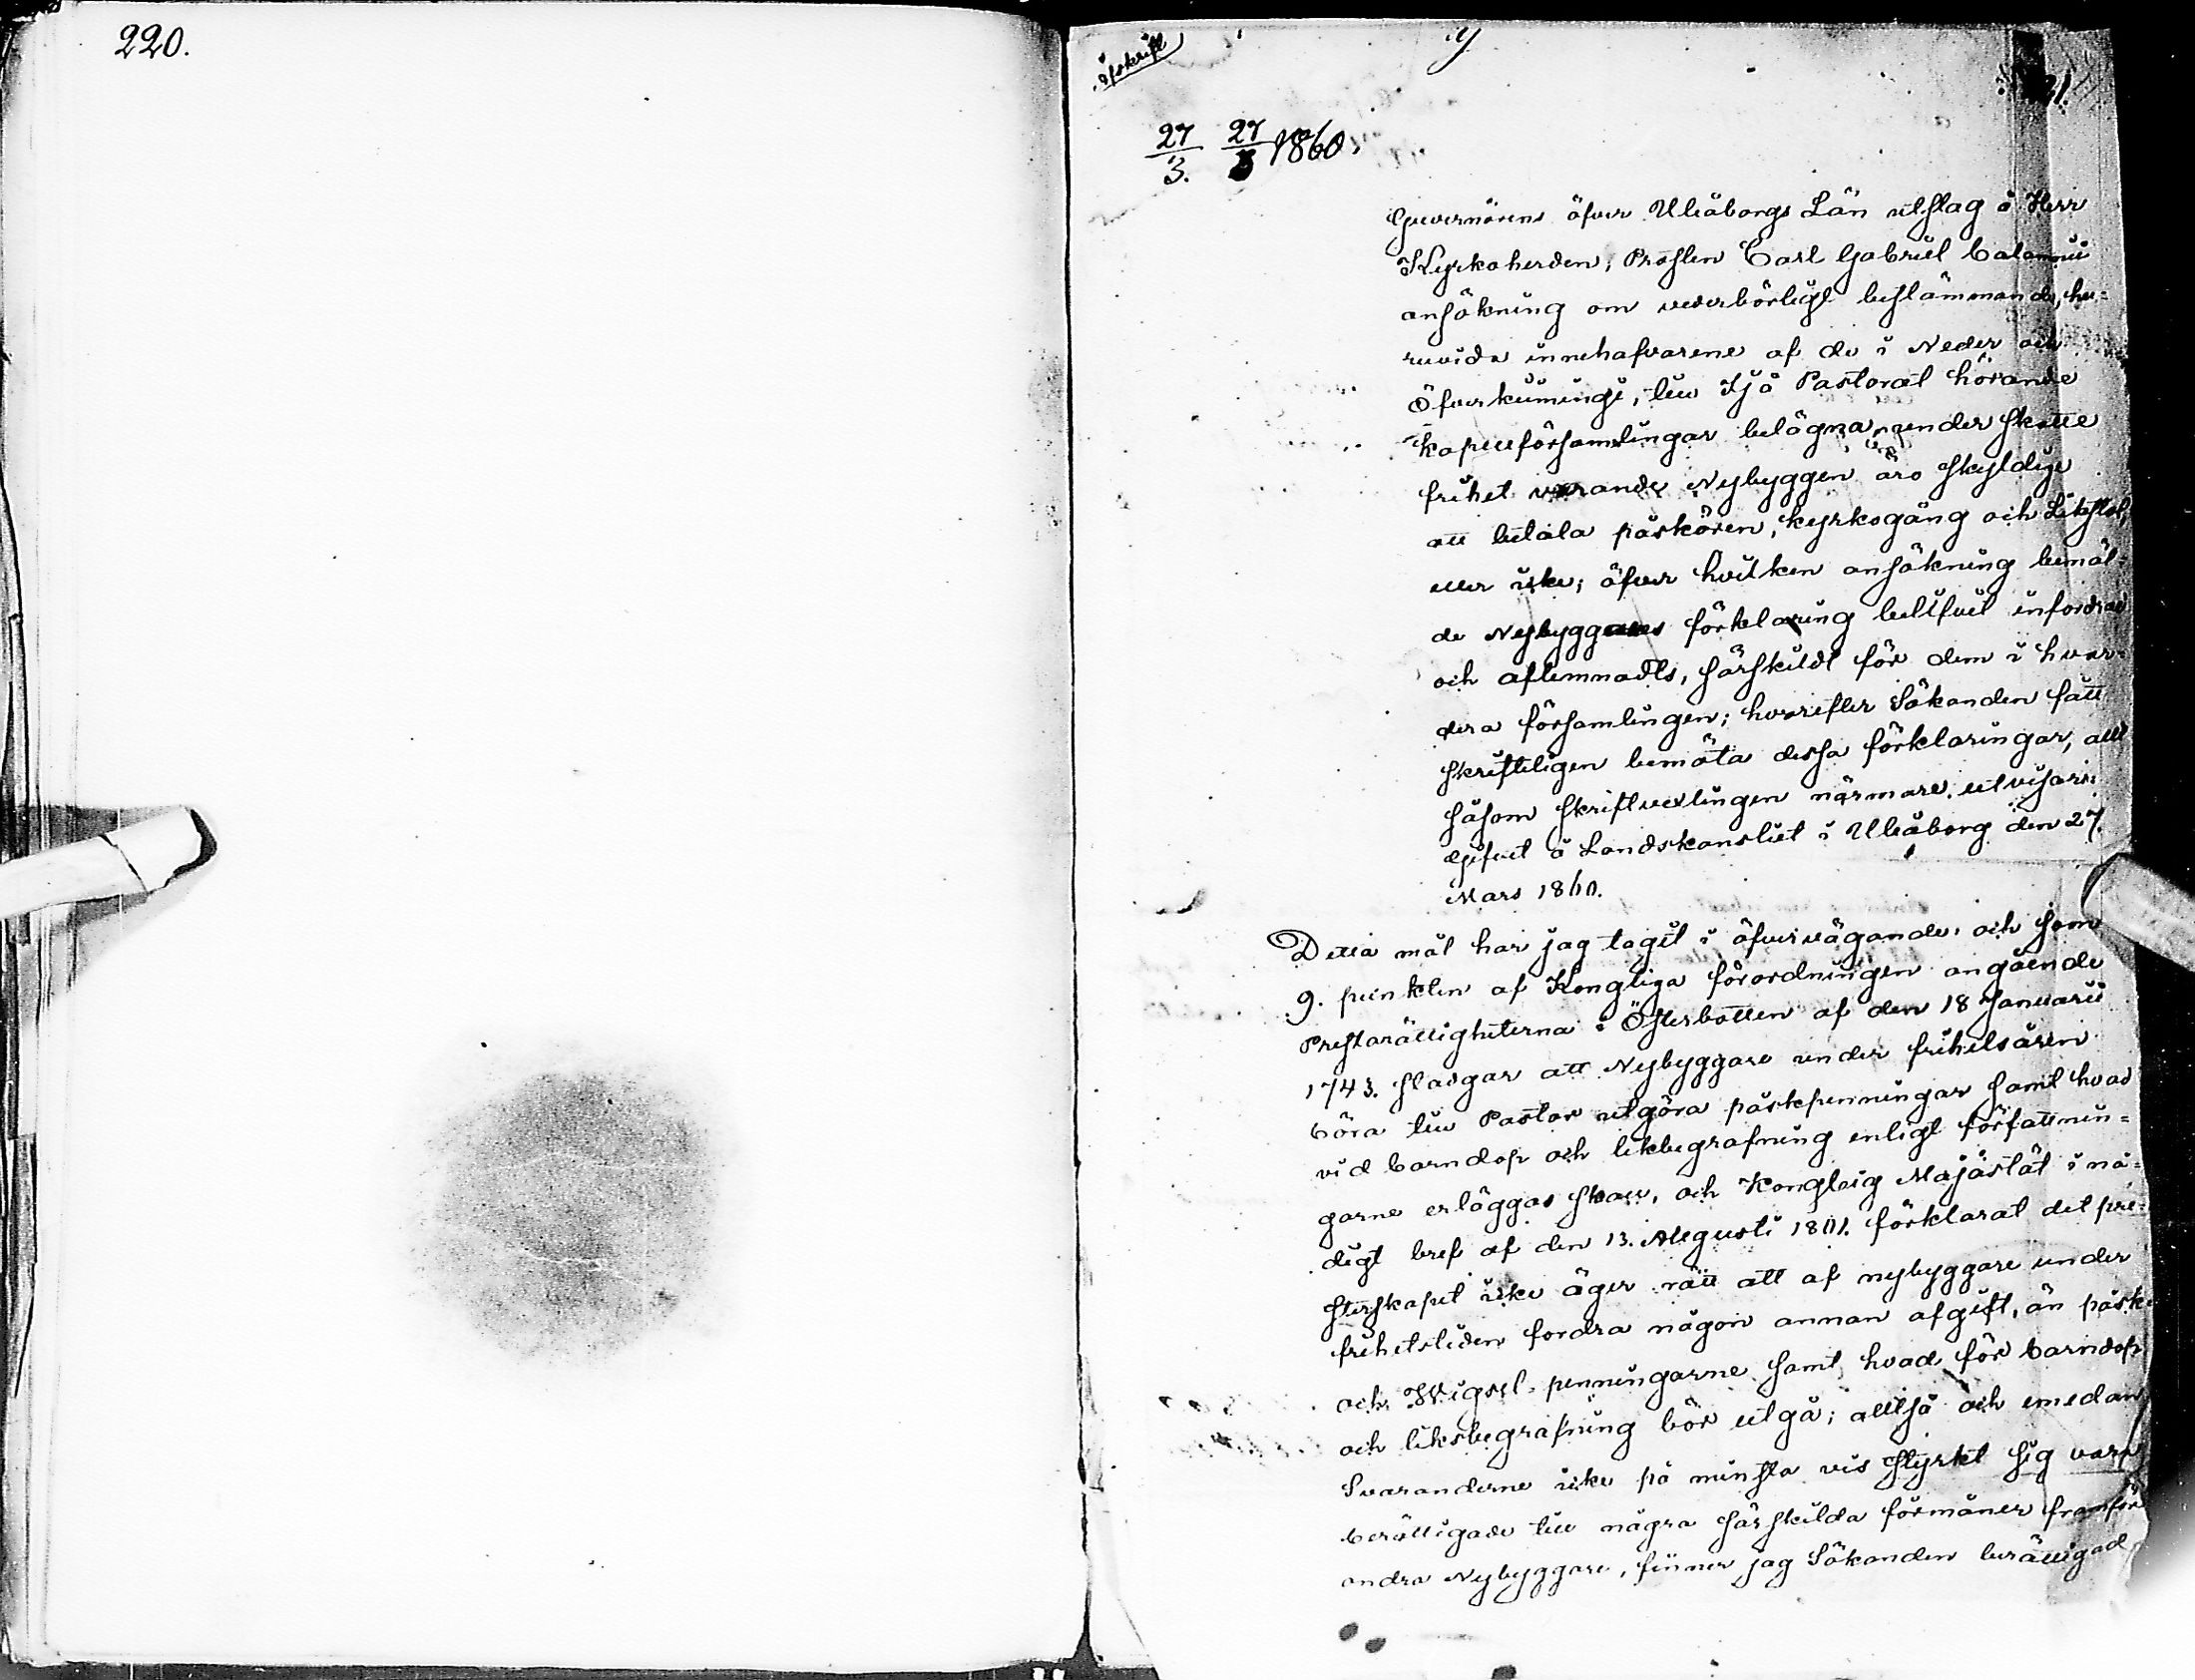 220.
Afskrift
27/3. 27/3 1860.
Guvernörens öfver Uleåborgs Län utslag å Herr
Kyrkoherden, Prosten Carl Gabriel Calamnii
ansökning om vederbörligt bestämmande, hu=
ruvida innehafvarene af de i Neder och
Öfverkiimingi, till Ijå Pastorat hörande
kapellförsamlingar belägna, under skatte
frihet varande Nybyggen äro skyldige
att betala påskören, kyrkogång och Likstol,
eller icke; öfver hvilken ansökning bemäl=
de Nybyggares förklaring blifvit infordrad
och aflemnadts, särskildt för dem i hvar=
dera församlingen; hvarefter Sökanden fått
skrifteligen bemöta dessa förklaringar, allt
såsom skriftvexlingen närmare utvisar;
Gifvet å Landskansliet i Uleåborg den 27.
Mars 1860.
Detta mål har jag tagit i öfvervägande; och som
9. punkten af Kongliga förordningen angående
Prestarättigheterna i Österbotten af den 18 Januarii
1743. stadgar att Nybyggare under frihetsåren
böra till Pastor utgöra påskpenningar samt hvad
vid barndop och likbegrafning enligt författnin=
garne erläggas skall, och Kongleig Majästät i nå=
digt bref af den 13. Augusti 1801. förklarat det pre=
sterskapet icke äger rätt att af nybyggare under
frihetstiden fordra någon annan afgift, än påsk=
och Wigsel-penningarne samt hvad för barndop
och liksbegrafning bör utgå; alltså och emedan
Svaranderne icke på minsta vis styrkt sig vara
berättigade till några särskilda förmåner framför
andra Nybyggare, finner jag Sökanden berättigad